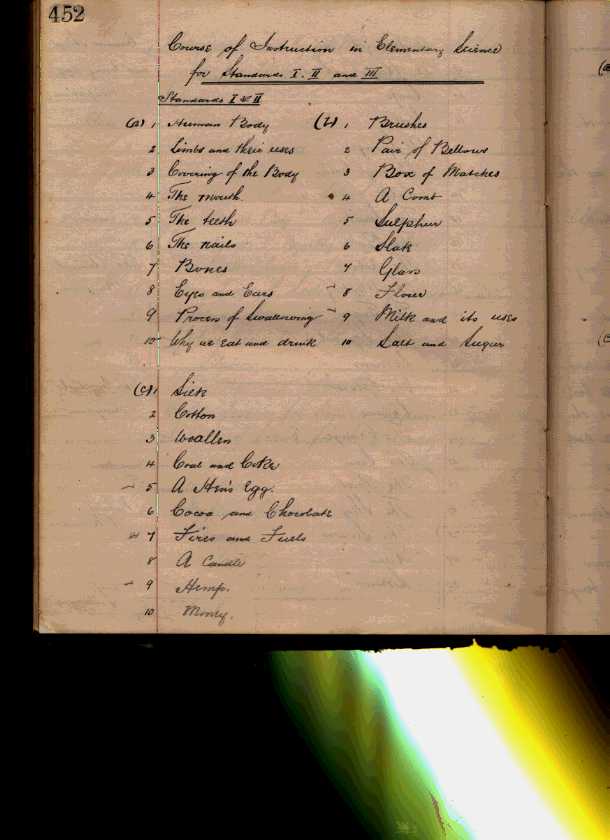 452
Course of Instruction in Elementary Science
for Standards I. II and III
Standards I & II
(a) 1 Human Body
2 Limbs and their uses
3 Covering of the Body
4 The mouth
5 The teeth
6 The nails
7 Bones
8 Eyes and Ears
9 Process of Swallowing
10 Why we eat and drink
(b) 1 Brushes
2 Pair of Bellows
3 Box of Matches
4 A Comb
5 Sulphur
6 Slate
7 Glass
8 Flour
9 Milk and its uses
10 Salt and Sugar
(c) 1 Silk
2 Cotton
3 Woollen
4 Coal and Coke
5 A Hen's Egg.
6 Cocoa and Chocolate
7 Fires and Fuels
8 A Candle
9 Hemp.
10 Money.